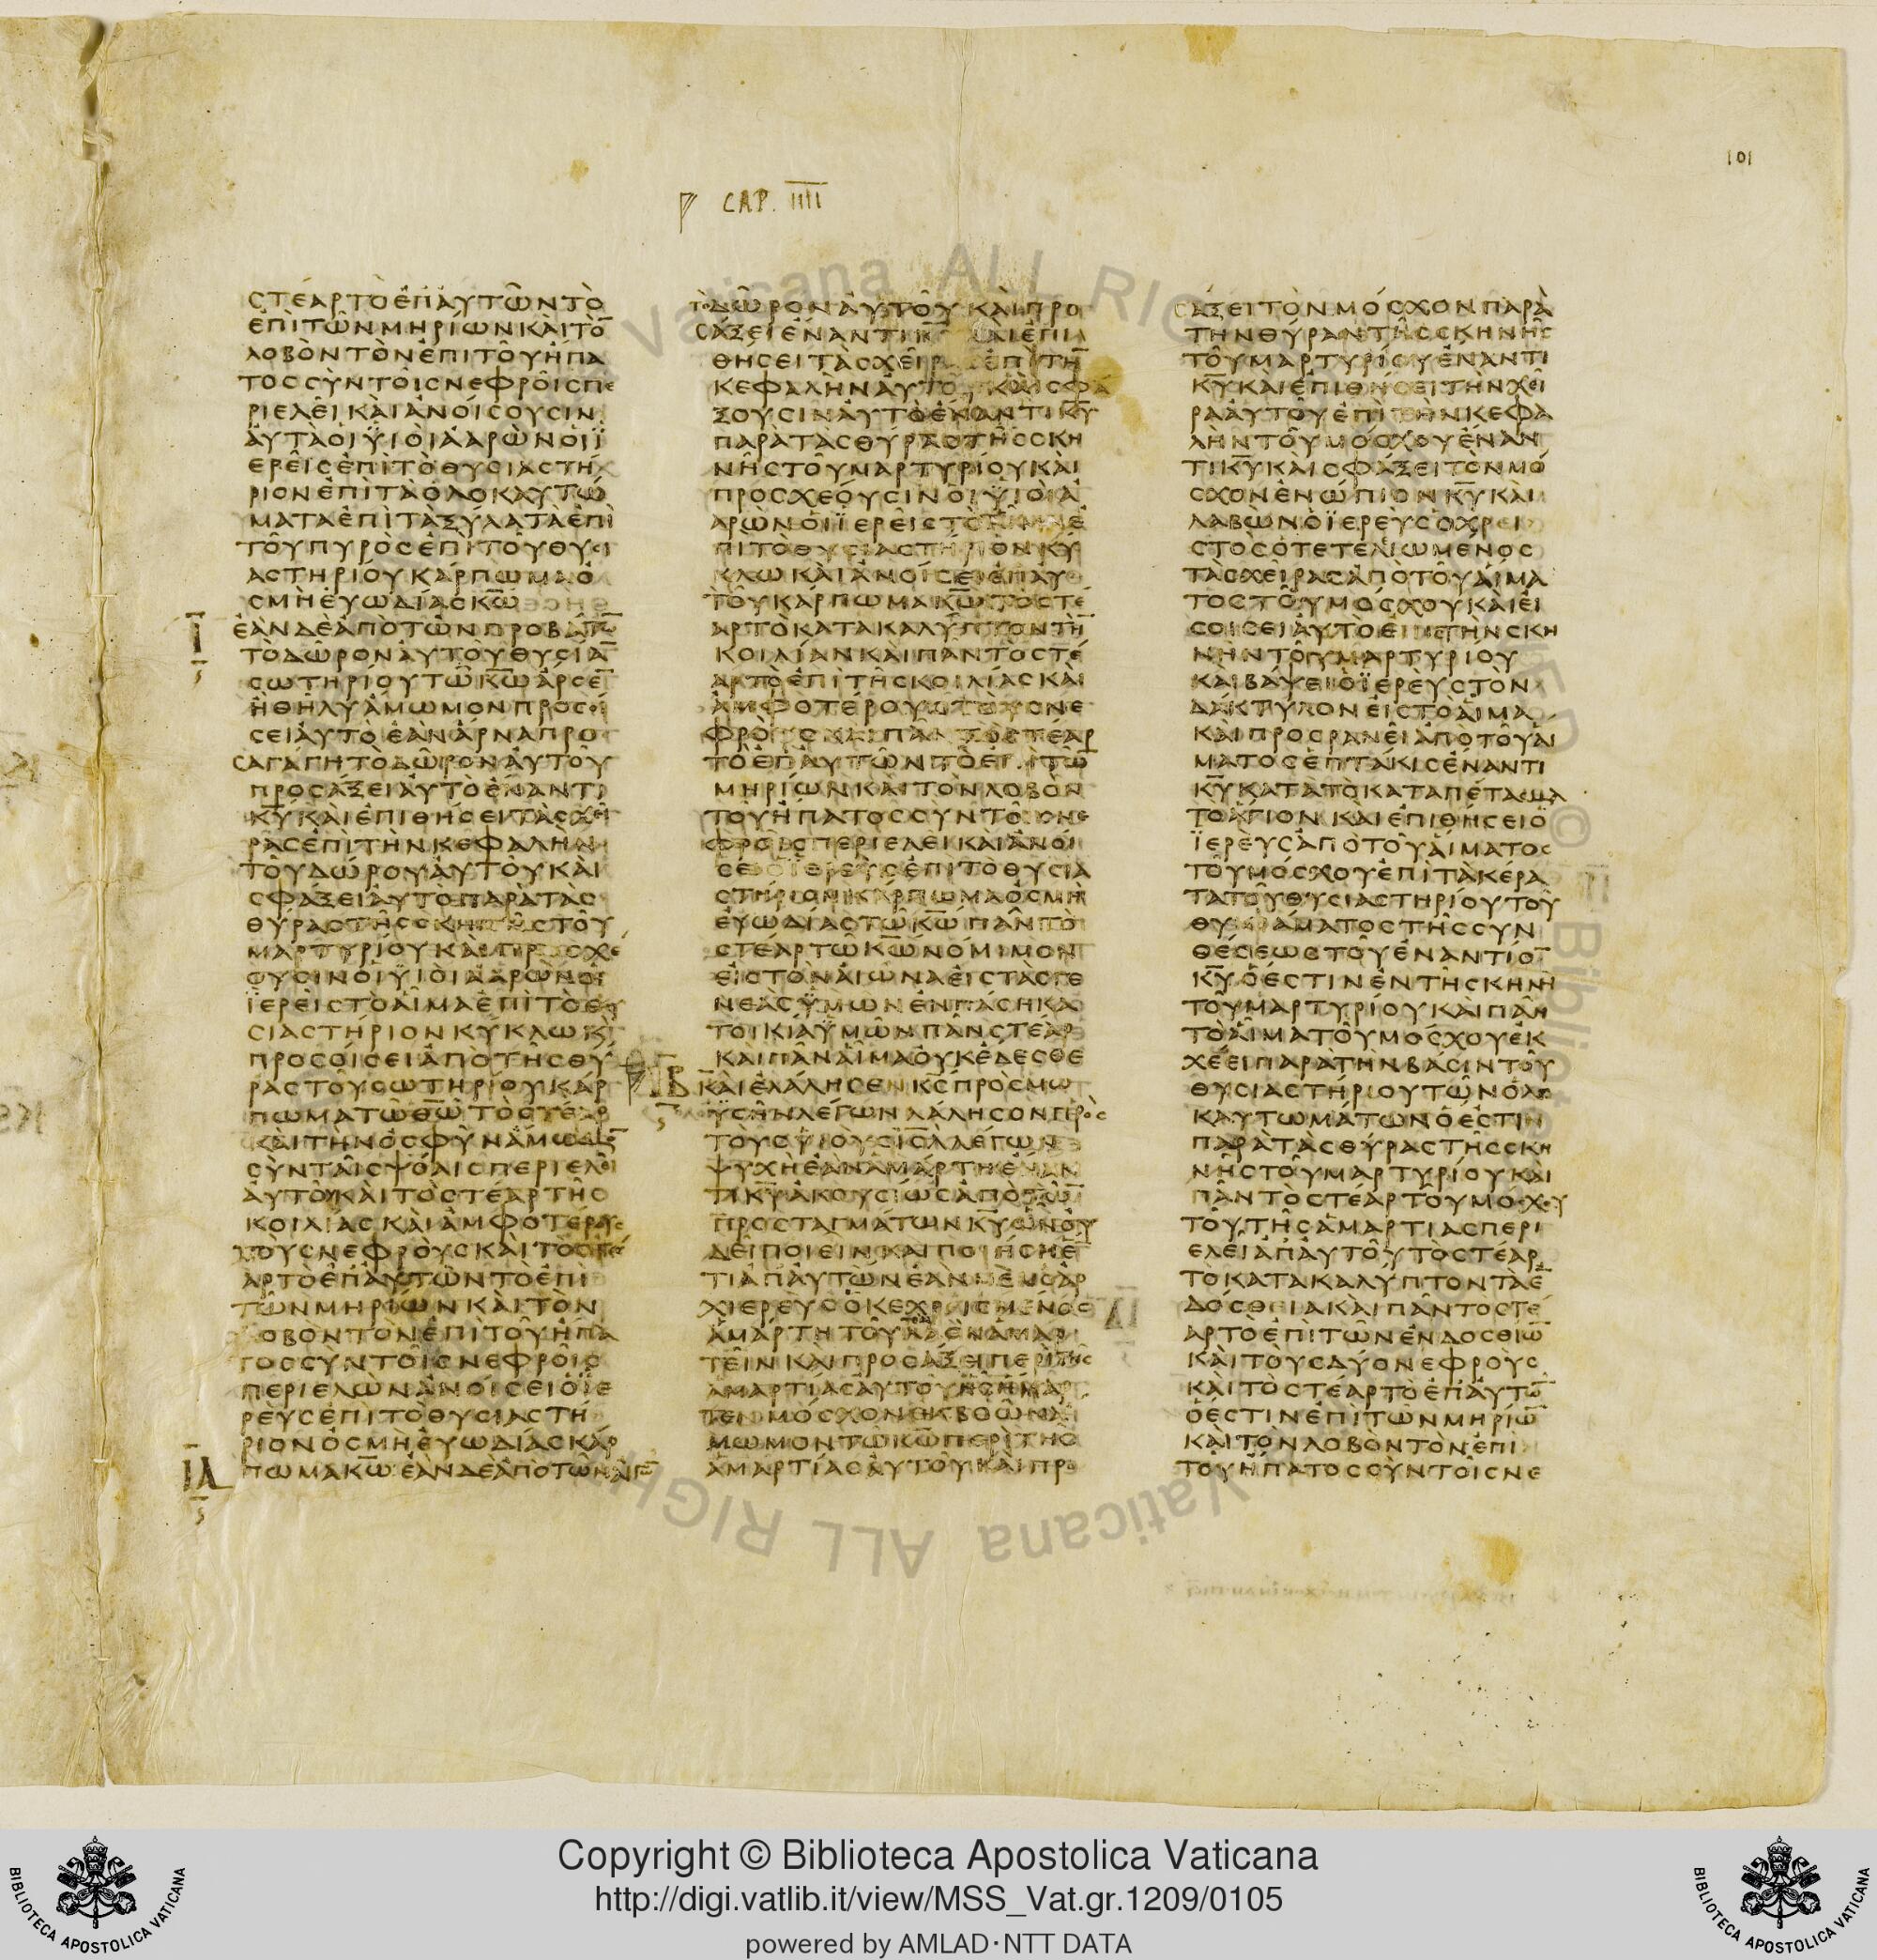 CAP. IIII
101
ΣΤΕΑΡΤΟΕΠΑΥΤΩΝΤΟ
ΕΠΙΤΩΝΜΗΡΙΩΝΚΑΙΤΟ̅
ΛΟΒΟΝΤΟΝΕΠΙΤΟΥΗΠΑ
ΤΟΣΣΥΝΤΟΙΣΝΕΦΡΟΙΣΠΕ
ΡΙΕΛΕΙΚΑΙΑΝΟΙΣΟΥΣΙΝ
ΑΥΤΑΟΙΫΙΟΙΑΑΡΩΝΟΙΪ
ΕΡΕΙΣΕΠΙΤΟΘΥΣΙΑΣΤΗ
ΡΙΟΝΕΠΙΤΑΟΛΟΚΑΥΤΩ
ΜΑΤΑΕΠΙΤΑΞΥΛΑΤΑΕΠΙ
ΤΟΥΠΥΡΟΣΕΠΙΤΟΥΘΥΣΙ
ΑΣΤΗΡΙΟΥΚΑΡΠΩΜΑΟ
ΣΜΗΕΥΩΔΙΑΣΚ̅Ω̅
Ι̅ ΕΑΝΔΕΑΠΟΤΩΝΠΡΟΒΑΤΩ̅
ΤΟΔΩΡΟΝΑΥΤΟΥΘΥΣΙΑ̅
ΣΩΤΗΡΙΟΥΤΩΚ̅Ω̅ΑΡΣΕ̅
ΗΘΗΛΥΑΜΩΜΟΝΠΡΟΣΟΙ
ΣΕΙΑΥΤΟΕΑΝΑΡΝΑΠΡΟ
ΣΑΓΑΓΗΤΟΔΩΡΟΝΑΥΤΟΥ
ΠΡΟΣΑΞΕΙΑΥΤΟΕΝΑΝΤΙ
Κ̅Υ̅ΚΑΙΕΠΙΘΗΣΕΙΤΑΣΧΕΙ
ΡΑΣΕΠΙΤΗΝΚΕΦΑΛΗΝ
ΤΟΥΔΩΡΟΥΑΥΤΟΥΚΑΙ
ΣΦΑΞΕΙΑΥΤΟΠΑΡΑΤΑΣ
ΘΥΡΑΣΤΗΣΣΚΗΝΗΣΤΟΥ
ΜΑΡΤΥΡΙΟΥΚΑΙΠΡΟΣΧΕ
ΟΥΣΙΝΟΙΫΙΟΙΑΑΡΩΝΟΙ
ΪΕΡΕΙΣΤΟΑΙΜΑΕΠΙΤΟΘΥ
ΣΙΑΣΤΗΡΙΟΝΚΥΚΛΩΚΑΙ
ΠΡΟΣΟΙΣΕΙΑΠΟΤΗΣΘΥ
ΡΑΣΤΟΥΣΩΤΗΡΙΟΥΚΑΡ
ΠΩΜΑΤΩΘ̅Ω̅ΤΟΣΤΕΑΡ
ΚΑΙΤΗΝΟΣΦΥΝΑΜΩΜΟ̅
ΣΥΝΤΑΙΣΨΟΑΙΣΠΕΡΙΕΛΕΙ
ΑΥΤΟΚΑΙΤΟΣΤΕΑΡΤΗΣ
ΚΟΙΛΙΑΣΚΑΙΑΜΦΟΤΕΡΟΥΣ
ΤΟΥΣΝΕΦΡΟΥΣΚΑΙΤΟΣΤΕ
ΑΡΤΟΕΠΑΥΤΩΝΤΟΕΠΙ
ΤΩΝΜΗΡΙΩΝΚΑΙΤΟΝ
ΛΟΒΟΝΤΟΝΕΠΙΤΟΥΗΠΑ
ΤΟΣΣΥΝΤΟΙΣΝΕΦΡΟΙΣ
ΠΕΡΙΕΛΩΝΑΝΟΙΣΕΙΟΪΕ
ΡΕΥΣΕΠΙΤΟΘΥΣΙΑΣΤΗ
ΡΙΟΝΟΣΜΗΕΥΩΔΙΑΣΚΑΡ
ΙΑ̅ ΠΩΜΑΚ̅Ω̅ΕΑΝΔΕΑΠΟΤΩΝΑΙΓΩ̅
ΤΟΔΩΡΟΝΑΥΤΟΥΚΑΙΠΡΟ
ΣΑΞΕΙΕΝΑΝΤΙΚ̅Υ̅ΚΑΙΕΠΙ
ΘΗΣΕΙΤΑΣΧΕΙΡΑΣΕΠΙΤΗ̅
ΚΕΦΑΛΗΝΑΥΤΟΥΚΑΙΣΦΑ
ΞΟΥΣΙΝΑΥΤΟΕΝΑΝΤΙΚ̅Υ̅
ΠΑΡΑΤΑΣΘΥΡΑΣΤΗΣΣΚΗ
ΝΗΣΤΟΥΜΑΡΤΥΡΙΟΥΚΑΙ
ΠΡΟΣΧΕΟΥΣΙΝΟΙΫΙΟΙΑ
ΑΡΩΝΟΙΪΕΡΕΙΣΤΟΑΙΜΑΕ
ΠΙΤΟΘΥΣΙΑΣΤΗΡΙΟΝΚΥ
ΚΛΩΚΑΙΑΝΟΙΣΕΙΕΠΑΥ
ΤΟΥΚΑΡΠΩΜΑΚ̅Ω̅ΤΟΣΤΕ
ΑΡΤΟΚΑΤΑΚΑΛΥΠΤΟΝΤΗ̅
ΚΟΙΛΙΑΝΚΑΙΠΑΝΤΟΣΤΕ
ΑΡΤΟΕΠΙΤΗΣΚΟΙΛΙΑΣΚΑΙ
ΑΜΦΟΤΕΡΟΥΣΤΟΥΣΝΕ
ΦΡΟΥΣΚΑΙΠΑΝΤΟΣΤΕΑΡ
ΤΟΕΠΑΥΤΩΝΤΟΕΠΙΤΩ̅
ΜΗΡΙΩΝΚΑΙΤΟΝΛΟΒΟΝ
ΤΟΥΗΠΑΤΟΣΣΥΝΤΟΙΣΝΕ
ΦΡΟΙΣΠΕΡΙΕΛΕΙΚΑΙΑΝΟΙ
ΣΕΙΟΪΕΡΕΥΣΕΠΙΤΟΘΥΣΙΑ
ΣΤΗΡΙΟΝΚΑΡΠΩΜΑΟΣΜΗ
ΕΥΩΔΙΑΣΤΩΚ̅Ω̅ΠΑΝΤΟ
ΣΤΕΑΡΤΩΚ̅Ω̅ΝΟΜΙΜΟΝ
ΕΙΣΤΟΝΑΙΩΝΑΕΙΣΤΑΣΓΕ
ΝΕΑΣΫΜΩΝΕΝΠΑΣΗΚΑ
ΤΟΙΚΙΑΫΜΩΝΠΑΝΣΤΕΑΡ
ΚΑΙΠΑΝΑΙΜΑΟΥΚΕΔΕΣΘΕ
ΙΒ̅ ΚΑΙΕΛΑΛΗΣΕΝΚ̅Σ̅ΠΡΟΣΜΩ
ΫΣΗΝΛΕΓΩΝΛΑΛΗΣΟΝΠΡΟΣ
ΤΟΥΣΫΙΟΥΣΙ̅Σ̅Λ̅ΛΕΓΩΝ
ΨΥΧΗΕΑΝΑΜΑΡΤΗΕΝΑΝ
ΤΙΚ̅Υ̅ΑΚΟΥΣΙΩΣΑΠΟΤΩ̅
ΠΡΟΣΤΑΓΜΑΤΩΝΚ̅Υ̅ΩΝΟΥ
ΔΕΙΠΟΙΕΙΝΚΑΙΠΟΙΗΣΗΕ̅
ΤΙΑΠΑΥΤΩΝΕΑΝΜΕΝΟΑΡ
ΙΓ̅ ΧΙΕΡΕΥΣΟΚΕΧΡΙΣΜΕΝΟΣ
ΑΜΑΡΤΗΤΟΥΛΑΟΝΑΜΑΡ
ΤΕΙΝΚΑΙΠΡΟΣΑΞΕΙΠΕΡΙΤΗΣ
ΑΜΑΡΤΙΑΣΑΥΤΟΥΗΣΗΜΑΡ
ΤΕΝΜΟΣΧΟΝΕΚΒΟΩΝΑ
ΜΩΜΟΝΤΩΚ̅Ω̅ΠΕΡΙΤΗΣ
ΑΜΑΡΤΙΑΣΑΥΤΟΥΚΑΙΠΡΟ
ΣΑΞΕΙΤΟΝΜΟΣΧΟΝΠΑΡΑ
ΤΗΝΘΥΡΑΝΤΗΣΣΚΗΝΗΣ
ΤΟΥΜΑΡΤΥΡΙΟΥΕΝΑΝΤΙ
Κ̅Υ̅ΚΑΙΕΠΙΘΗΣΕΙΤΗΝΧΕΙ
ΡΑΑΥΤΟΥΕΠΙΤΗΝΚΕΦΑ
ΛΗΝΤΟΥΜΟΣΧΟΥΕΝΑΝ
ΤΙΚ̅Υ̅ΚΑΙΣΦΑΞΕΙΤΟΝΜΟ
ΣΧΟΝΕΝΩΠΙΟΝΚ̅Υ̅ΚΑΙ
ΛΑΒΩΝΟΪΕΡΕΥΣΟΧΡΕΙ
ΣΤΟΣΟΤΕΤΕΛΕΙΩΜΕΝΟΣ
ΤΑΣΧΕΙΡΑΣΑΠΟΤΟΥΑΙΜΑ
ΤΟΣΤΟΥΜΟΣΧΟΥΚΑΙΕΙ
ΣΟΙΣΕΙΑΥΤΟΕΙΣΤΗΝΣΚΗ
ΝΗΝΤΟΥΜΑΡΤΥΡΙΟΥ
ΚΑΙΒΑΨΕΙΟΪΕΡΕΥΣΤΟΝ
ΔΑΚΤΥΛΟΝΕΙΣΤΟΑΙΜΑ
ΚΑΙΠΡΟΣΡΑΝΕΙΑΠΟΤΟΥΑΙ
ΜΑΤΟΣΕΠΤΑΚΙΣΕΝΑΝΤΙ
Κ̅Υ̅ΚΑΤΑΤΟΚΑΤΑΠΕΤΑΣΜΑ
ΤΟΑΓΙΟΝΚΑΙΕΠΙΘΗΣΕΙΟ
ΪΕΡΕΥΣΑΠΟΤΟΥΑΙΜΑΤΟΣ
ΤΟΥΜΟΣΧΟΥΕΠΙΤΑΚΕΡΑ
ΤΑΤΟΥΘΥΣΙΑΣΤΗΡΙΟΥΤΟΥ
ΘΥΜΙΑΜΑΤΟΣΤΗΣΣΥΝ
ΘΕΣΕΩΣΤΟΥΕΝΑΝΤΙΟ̅
Κ̅Υ̅ΟΕΣΤΙΝΕΝΤΗΣΚΗΝΗ
ΤΟΥΜΑΡΤΥΡΙΟΥΚΑΙΠΑΝ
ΤΟΑΙΜΑΤΟΥΜΟΣΧΟΥΕΚ
ΧΕΕΙΠΑΡΑΤΗΝΒΑΣΙΝΤΟΥ
ΘΥΣΙΑΣΤΗΡΙΟΥΤΩΝΟΛΟ
ΚΑΥΤΩΜΑΤΩΝΟΕΣΤΙΝ
ΠΑΡΑΤΑΣΘΥΡΑΣΤΗΣΣΚΗ
ΝΗΣΤΟΥΜΑΡΤΥΡΙΟΥΚΑΙ
ΠΑΝΤΟΣΤΕΑΡΤΟΥΜΟΣΧΟΥ
ΤΟΥΤΗΣΑΜΑΡΤΙΑΣΠΕΡΙ
ΕΛΕΙΑΠΑΥΤΟΥΤΟΣΤΕΑΡ
ΤΟΚΑΤΑΚΑΛΥΠΤΟΝΤΑΕ̅
ΔΟΣΘΕΙΑΚΑΙΠΑΝΤΟΣΤΕ
ΑΡΤΟΕΠΙΤΩΝΕΝΔΟΣΘΙΩ̅
ΚΑΙΤΟΥΣΔΥΟΝΕΦΡΟΥΣ
ΚΑΙΤΟΣΤΕΑΡΤΟΕΠΑΥΤΩ̅
ΟΕΣΤΙΝΕΠΙΤΩΝΜΗΡΙΩ̅
ΚΑΙΤΟΝΛΟΒΟΝΤΟΝΕΠΙ
ΤΟΥΗΠΑΤΟΣΣΥΝΤΟΙΣΝΕ
Copyright © Biblioteca Apostolica Vaticana
http://digi.vatlib.it/view/MSS_Vat.gr.1209/0105
powered by AMLAD·NTT DATA
BIBLIOTECA APOSTOLICA VATICANA
BIBLIOTECA APOSTOLICA VATICANA